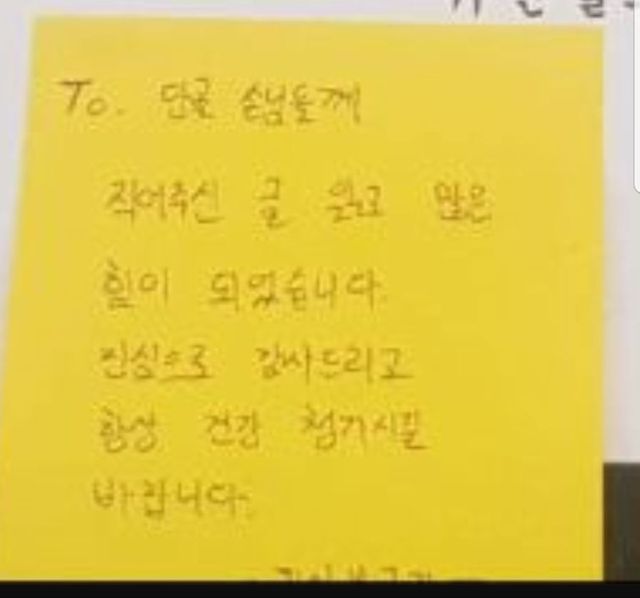 To. 단골 손님들께
적어주신 글 읽고 많은
힘이 되었습니다.
진심으로 감사드리고
항상 건강 챙기시길
바랍니다.